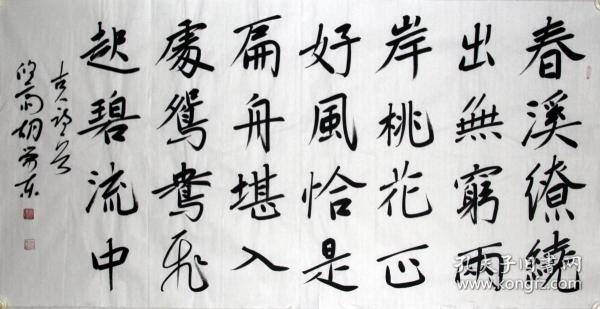 春溪繚繞
出無窮兩
岸桃花正
好風恰是
扁舟堪入
處鴛鴦飛
起碧流中
孔夫子旧书网
www.kongfz.com